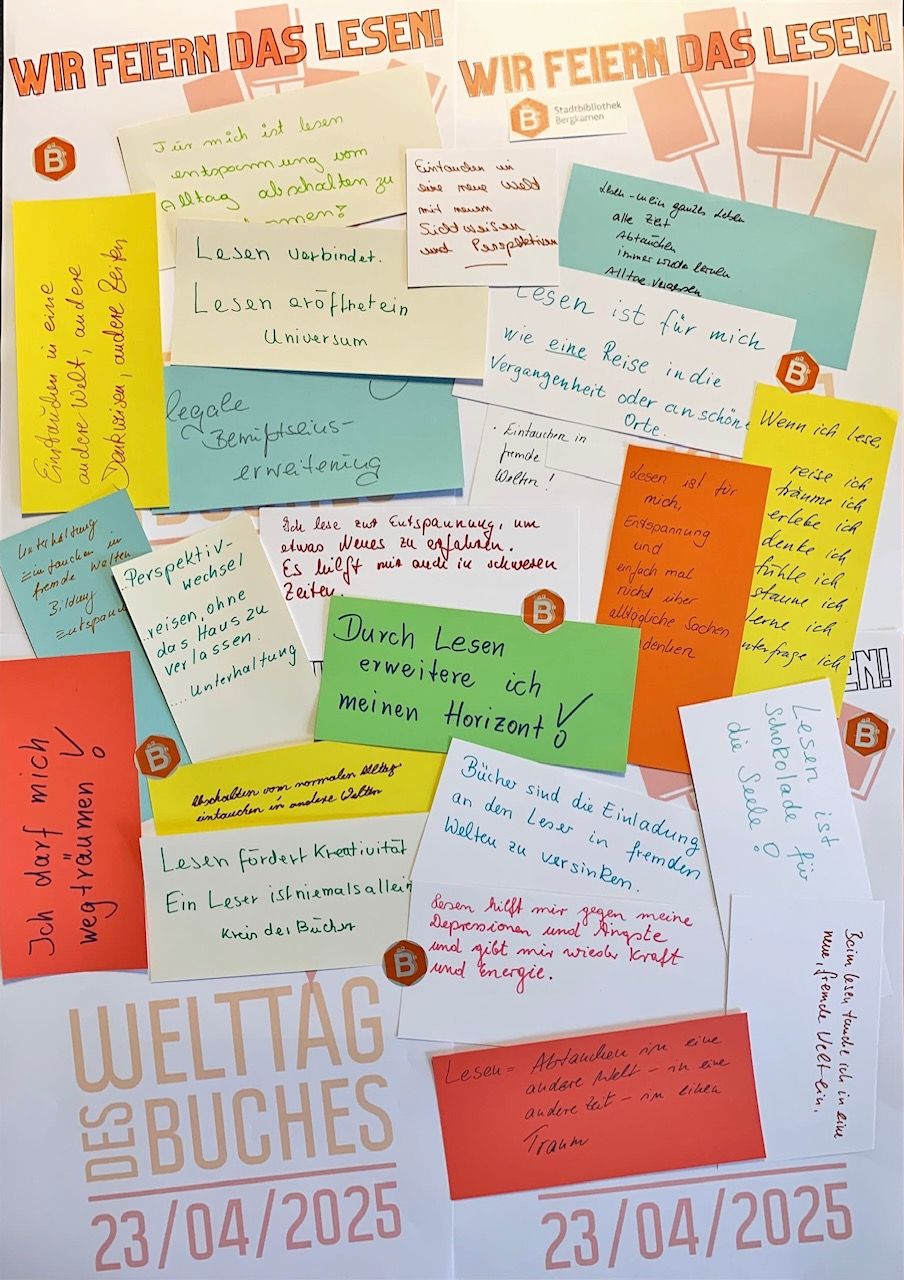 WIR FEIERN DAS LESEN!
WIR FEIERN DAS LESEN!
Stadtbibliothek
Bergkamen
Für mich ist lesen
entspannung vom
Alltag abschalten zu
Eintauchen in
eine neue Welt
mit neuen
Sichtweisen
und Perspektiven
Lesen - mein ganzes Leben
alle Zeit
Abtauchen
immer wieder lernen
Alltag vergessen
Eintauchen in eine
andere Welt, andere
Denkweisen, andere Zeiten
Lesen verbindet.
Lesen eröffnet ein
Universum
Lesen ist für mich
wie eine Reise in die
Vergangenheit oder an schöne
Orte.
legale
Bewußtseins-
erweiterung
· Eintauchen in
fremde
Welten!
Wenn ich lese,
reise ich
träume ich
erlebe ich
denke ich
fühle ich
staune ich
lerne ich
nterfrage ich
Lesen ist für
mich,
Entspannung
und
einfach mal
nicht über
alltägliche Sachen
denken
Unterhaltung
Eintauchen in
fremde Welten
Bildung
Entspann
Perspektiv-
wechsel
...reisen, ohne
das Haus zu
verlassen.
.... Unterhaltung
Ich lese zur Entspannung, um
etwas Neues zu erfahren.
Es hilft mir auch in schweren
Zeiten.
Durch Lesen
erweitere ich
meinen Horizont!
EN!
Ich darf mich
wegträumen!
Abschalten vom normalen Alltag
eintauchen in andere Welten
Lesen ist
Schokolade für
die Seele!
Bücher sind die Einladung
an den Leser in fremden
Welten zu versinken.
Lesen fördert Kreativität
Ein Leser ist niemals allein
Kreis der Bücher
Lesen hilft mir gegen meine
Depressionen und Ängste
und gibt mir wieder Kraft
und Energie.
Beim lesen tauche ich in eine
neue, fremde Welt ein.
Lesen = Abtauchen in eine
andere Welt - in eine
andere Zeit - in einen
Traum
WELTTAG
DES BUCHES
23/04/2025
23/04/2025